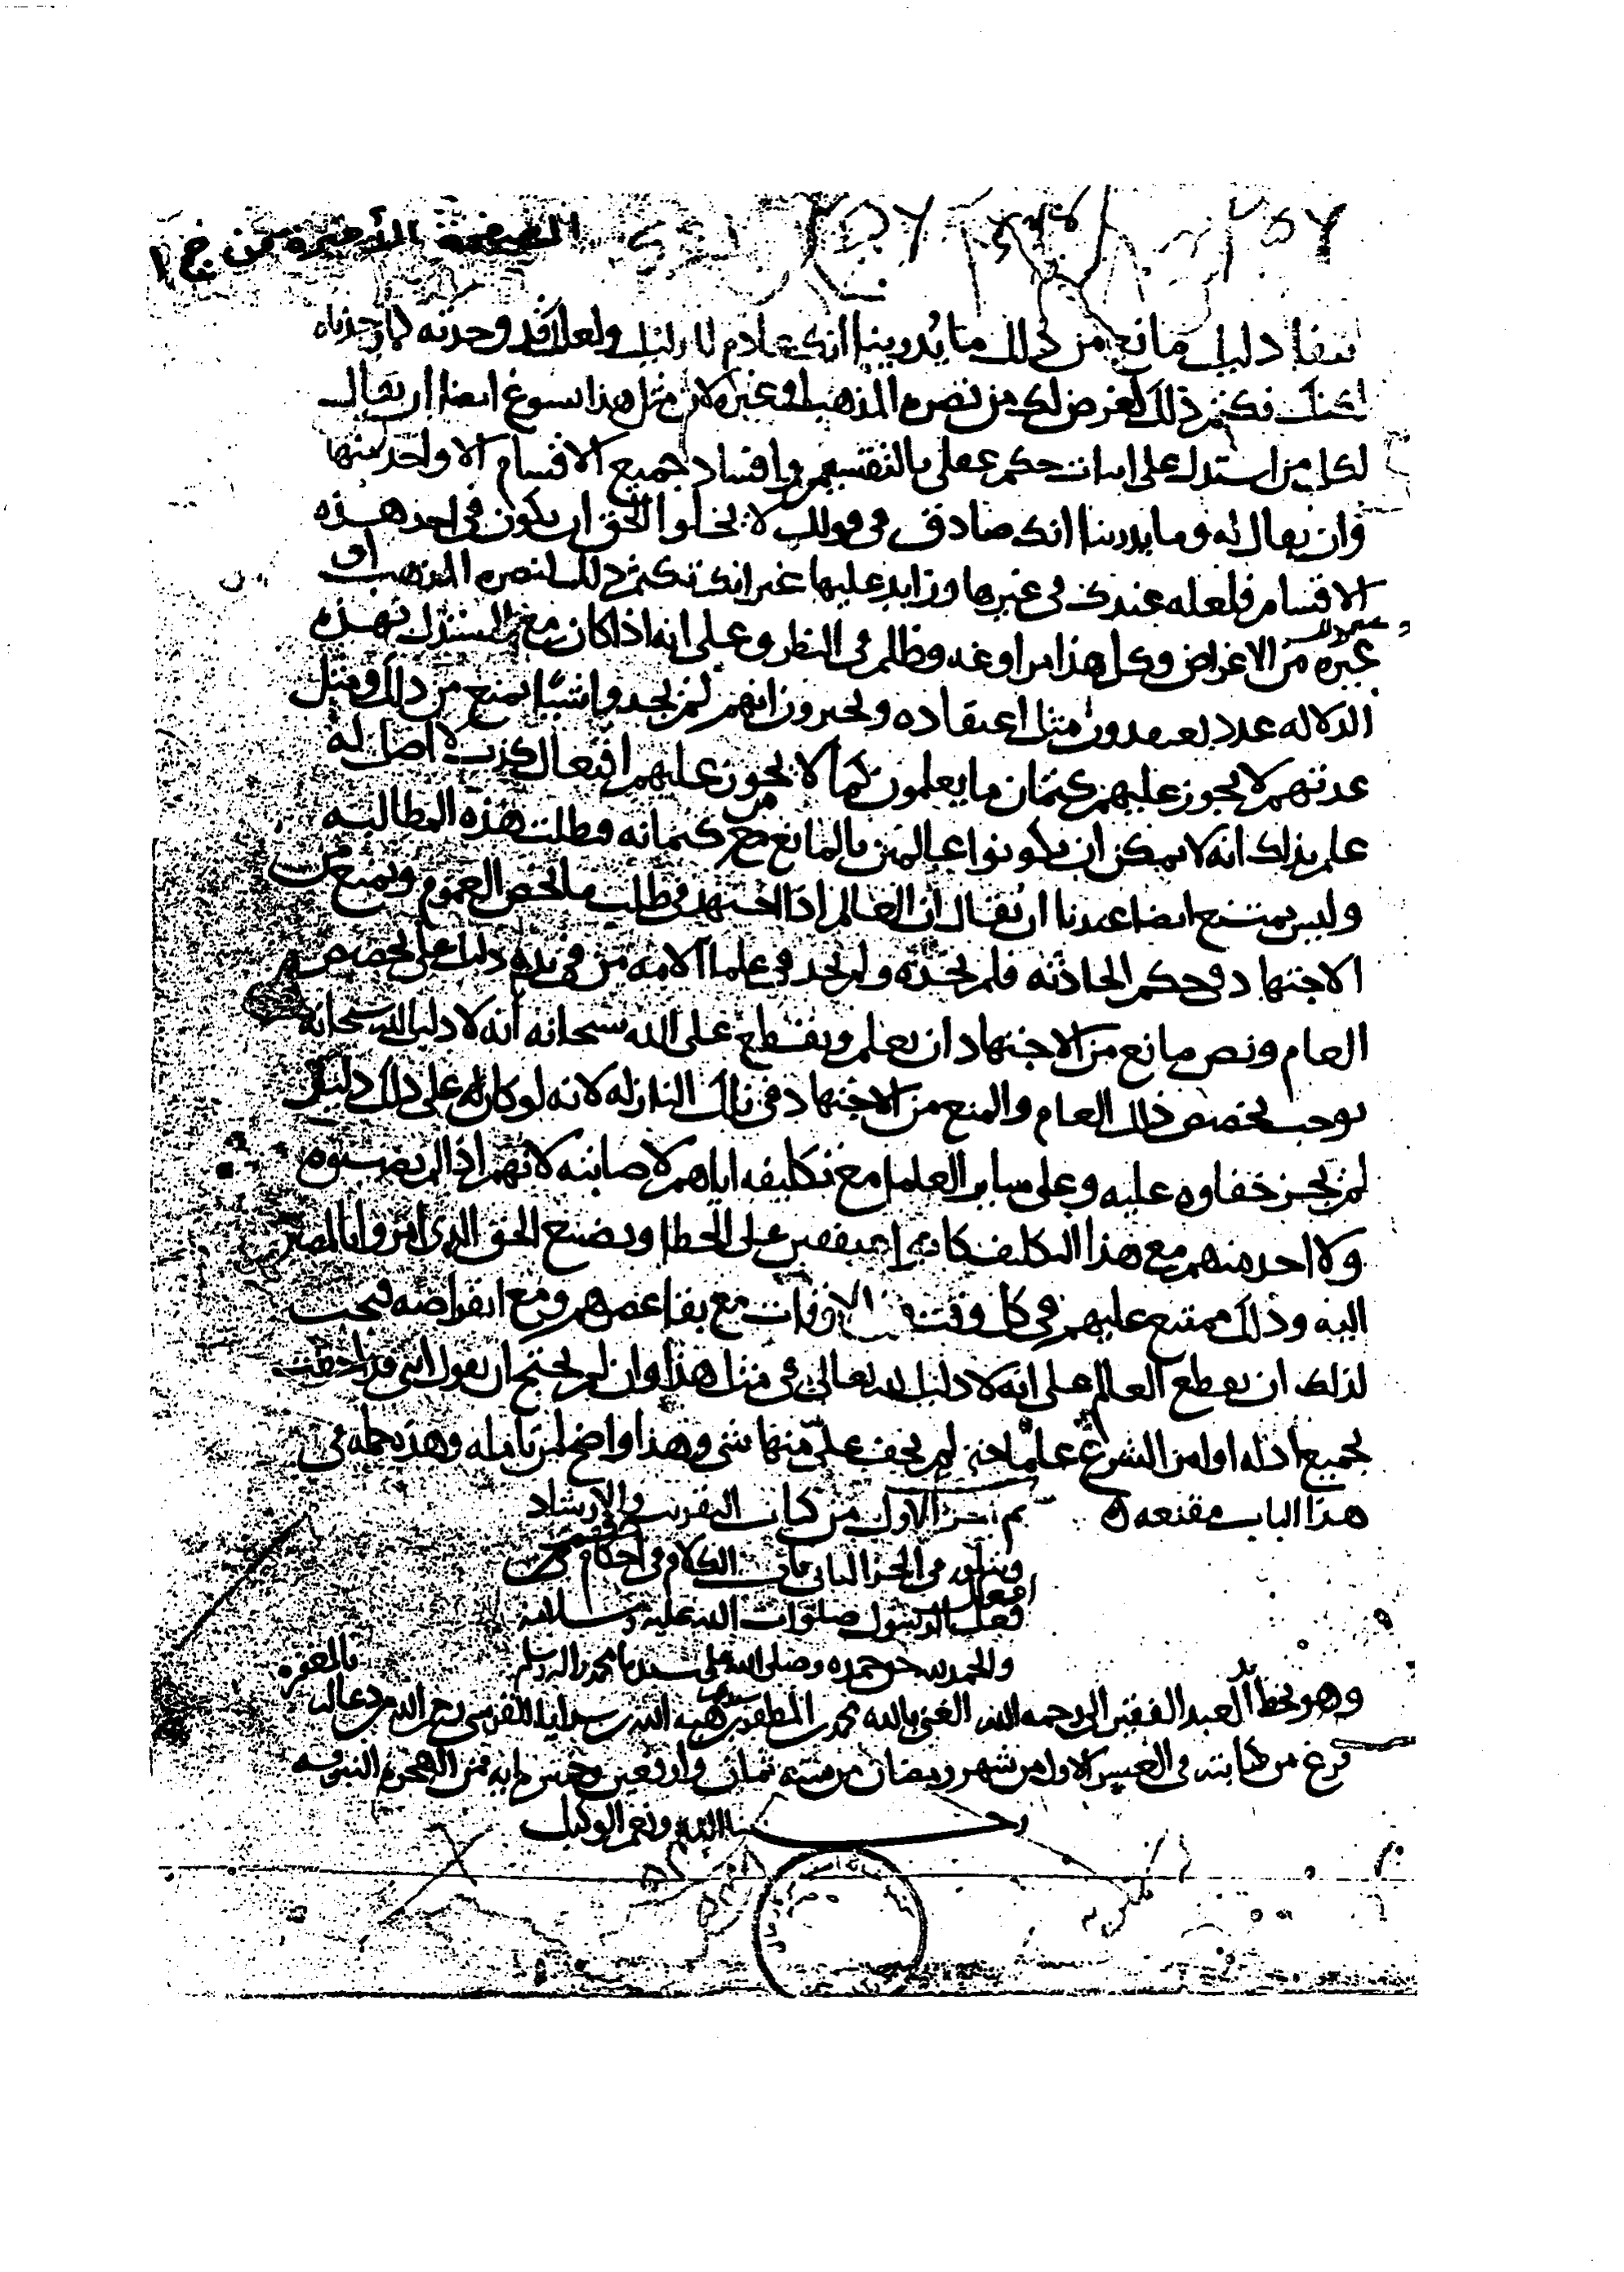 الصفحة الأخيرة من ج ١
دليل مانع من ذلك ما يدرينا انك عادم للدليل ولعلك قد وجدته كما وجدناه
لكنك تكتم ذلك لغرض لك من نصره المذهب او غيره لان مثل هذا يسوغ ايضا ان يقال
لكل من استدل على اثبات حكم عقلي بالتقسيم وافساد جميع الاقسام الا واحد منها
وان يقال له وما يدرينا انك صادق في قولك لا يخلوا الحق ان يكون في احد هذه
الاقسام فلعله عندك في غيرها وزايد عليها غير انك تكتم ذلك لنصره المذهب او
غيره من الاغراض وكل هذا مراوغه وظلم في النظر وعلى انه اذا كان مع المستدل بهذه
الدلاله عدد يعتقدون مثل اعتقاده ويخبرون انهم لم يجدوا شيئا يمنع من ذلك ومثل
عدتهم لا يجوز عليهم كتمان ما يعلمون كما لا يجوز عليهم افتعال كذب لا اصل له
علم بذلك انه لا يمكن ان يكونوا عالمين بالمانع مع كتمانه وبطلت هذه المطالبه
وليس بممتنع ايضا عندنا ان يقال ان العالم اذا اجتهد في طلب ما يخص العموم ويمنع من
الاجتهاد في حكم الحادثه فلم يجده ولم يجد في علما الامه من في يده دليل على تخصيص
العام ونص مانع من الاجتهاد ان يعلم ويقطع على الله سبحانه انه لا دليل لله سبحانه
يوجب تخصيص ذلك العام والمنع من الاجتهاد في تلك النازله لانه لو كان له على ذلك دليل
لم يجز خفاوه عليه وعلى ساير العلما مع تكليفه اياهم لاصابته لانهم اذا لم يصيبوه
ولا احد منهم مع هذا التكليف كانوا متفقين على الخطا وتضييع الحق الذي امروا بالمصير
اليه وذلك ممتنع عليهم في كل وقت من الاوقات مع بقا عصرهم ومع انقراضه فيجب
لذلك ان يقطع العالم على انه لا دليل لله تعالى في مثل هذا وان لم يحتج ان يقول انني قد احطت
بجميع ادله اوامر الشرع علما حتى لم يخف علي منها شي وهذا واضح لمن تامله وهذه جمله في
هذا الباب مقنعه تم الجز الاول من كتاب التقريب والارشاد
ويتلوه في الجز الثاني باب الكلام في احكام
افعال
الرسول صلوات الله عليه وسلامه
والحمد لله حق حمده وصلى الله على سيدنا محمد واله وسلم
وهو بخط العبد الفقير الى رحمه الله الغني بالله محمد بن المظفر بن هبه الله بن سرايا المقدسي رحم الله من دعا له بالمغفره
فرغ من كتابته في العشر الاول من شهر رمضان من سنه ثمان واربعين وخمس مايه من الهجره النبويه
حسبنا الله ونعم الوكيل